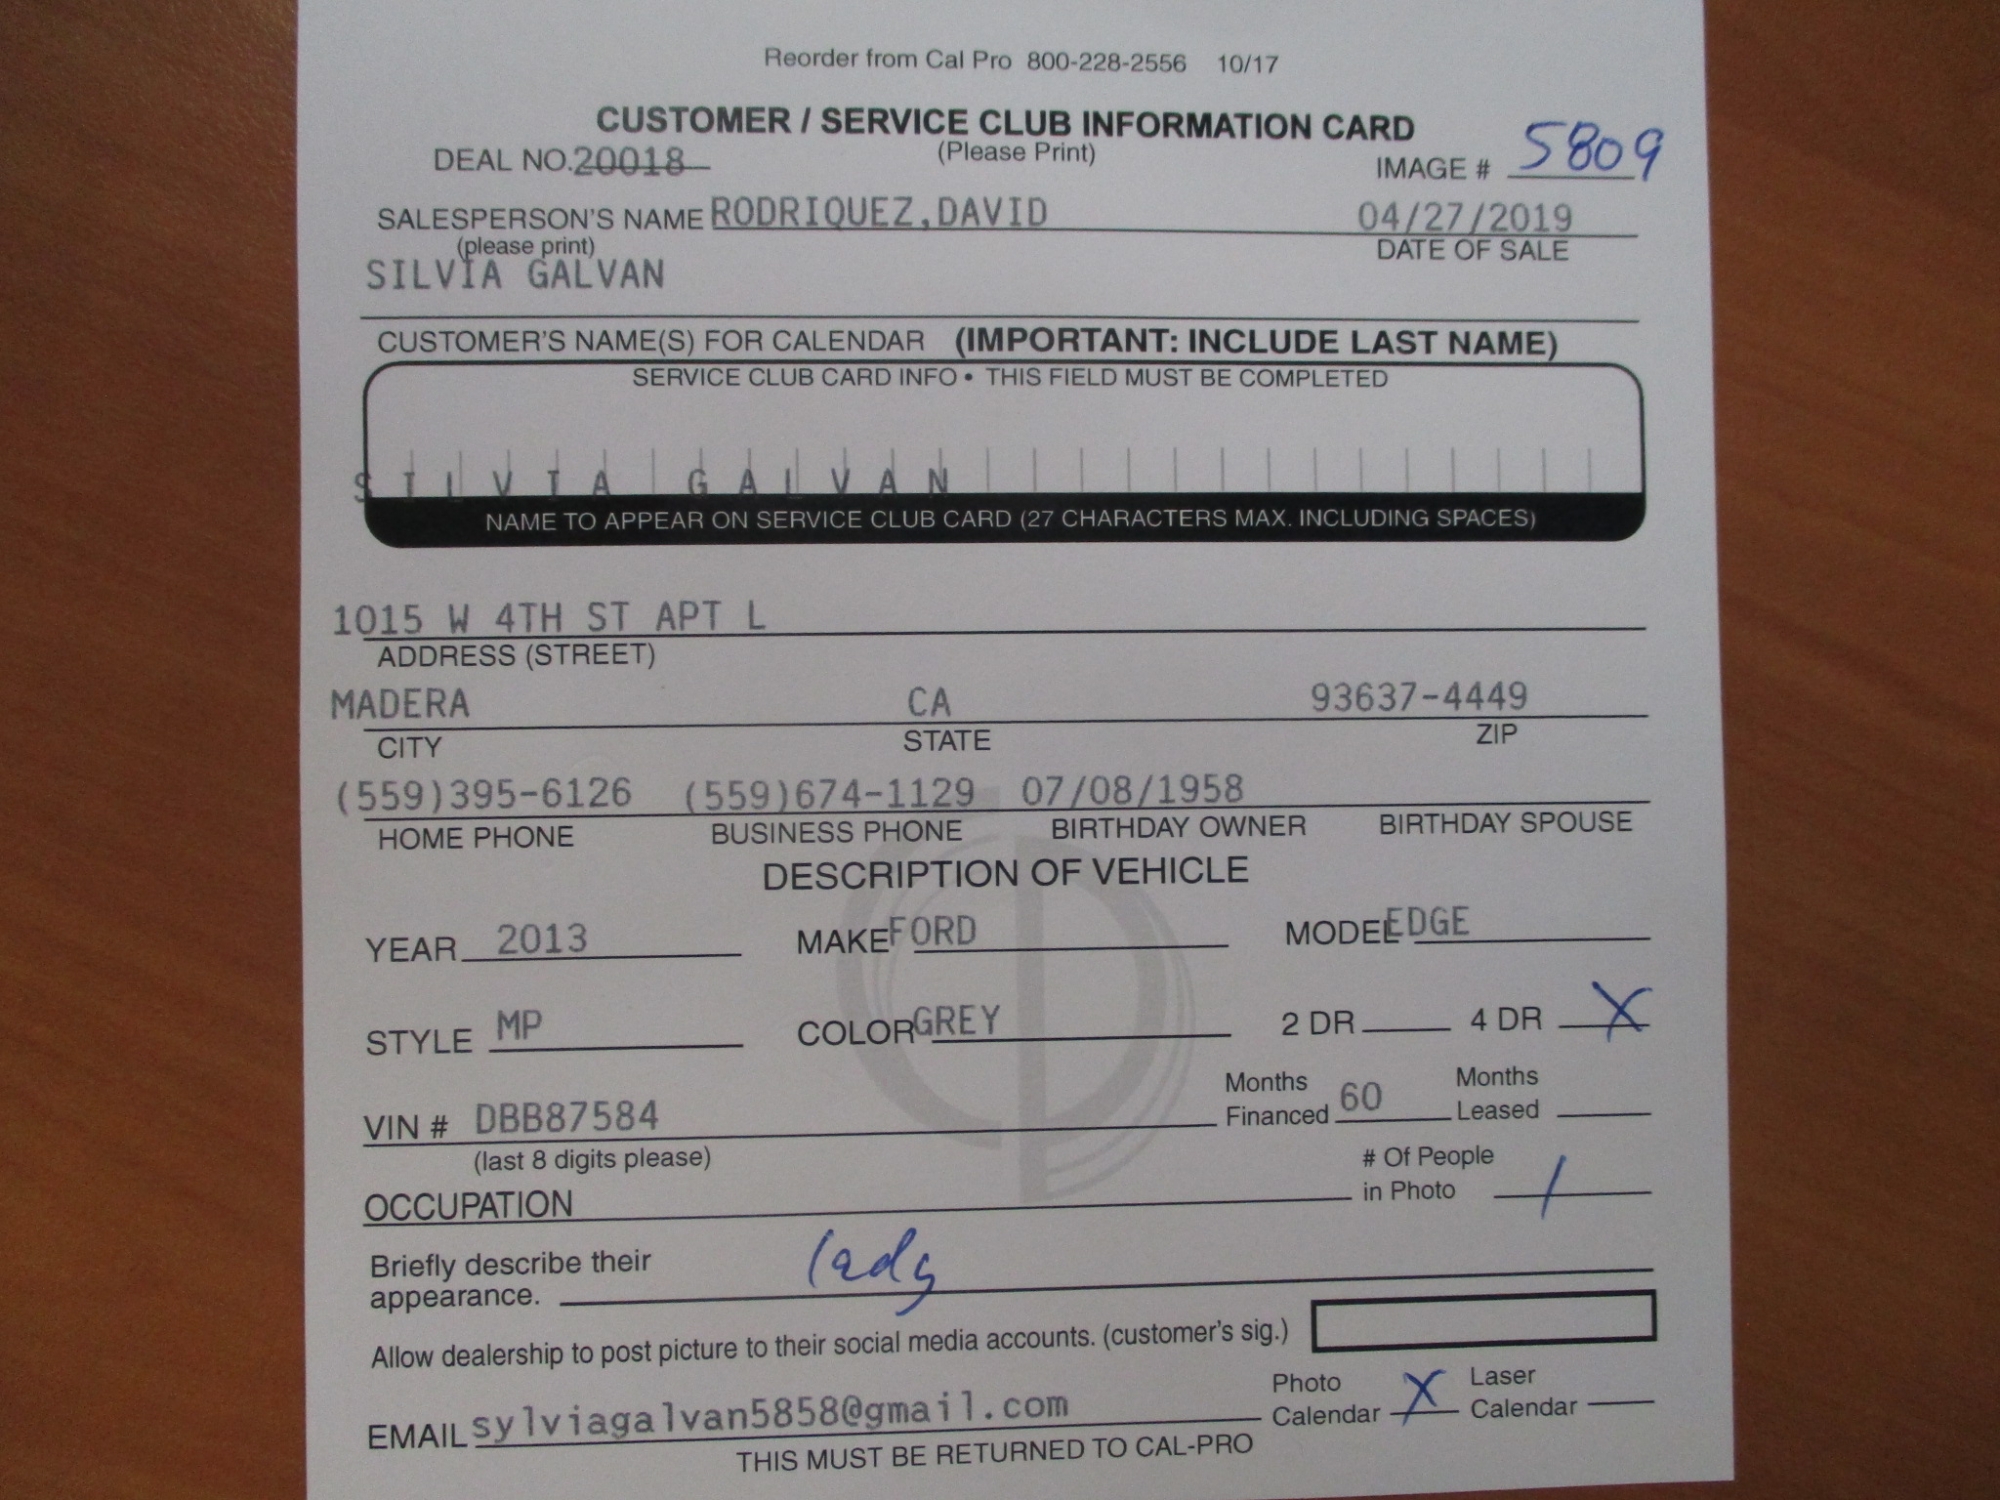 Reorder from Cal Pro 800-228-2556 10/17
CUSTOMER / SERVICE CLUB INFORMATION CARD
(Please Print)
DEAL NO. 20018
IMAGE # 5809
SALESPERSON'S NAME RODRIQUEZ,DAVID 04/27/2019
(please print) DATE OF SALE
SILVIA GALVAN
CUSTOMER'S NAME(S) FOR CALENDAR (IMPORTANT: INCLUDE LAST NAME)
SERVICE CLUB CARD INFO • THIS FIELD MUST BE COMPLETED
SILVIA GALVAN
NAME TO APPEAR ON SERVICE CLUB CARD (27 CHARACTERS MAX. INCLUDING SPACES)
1015 W 4TH ST APT L
ADDRESS (STREET)
MADERA CA 93637-4449
CITY STATE ZIP
(559)395-6126 (559)674-1129 07/08/1958
HOME PHONE BUSINESS PHONE BIRTHDAY OWNER BIRTHDAY SPOUSE
DESCRIPTION OF VEHICLE
YEAR 2013 MAKE FORD MODEL EDGE
STYLE MP COLOR GREY 2 DR 4 DR X
VIN # DBB87584 Months Financed 60 Months Leased
(last 8 digits please)
OCCUPATION # Of People in Photo 1
Briefly describe their appearance. lady
Allow dealership to post picture to their social media accounts. (customer's sig.)
EMAIL sylviagalvan5858@gmail.com Photo Calendar X Laser Calendar
THIS MUST BE RETURNED TO CAL-PRO